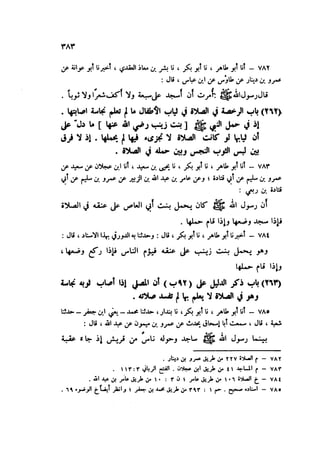 ٣٨٣
٧٨٢ - أنا أبو طاهر ، نا أبو بكر ، نا بشر بن معاذ العقدي ، أخبرنا أبو عوانة عن
عمرو بن دينار عن طاوس عن ابن عباس ، قال :
قال رسول الله ﷺ : أُمرت أن أسجد على سبعة ولا أكف شعراً ولا ثوباً .
(٢٦٢) باب الرخصة في الصلاة في ثياب الأطفال ما لم تعلم نجاسة اصابتها .
إذ في حمل النبي ﷺ [ بنت زينب رضي الله عنها ] ما دل على
أن ثيابها لو كانت الصلاة لا تجزىء فيها لم يحملها . إذ لا فرق
بين لبس الثوب النجس وبين حمله في الصلاة .
٧٨٣ - أنا أبو طاهر ، نا أبو بكر ، نا يحيى بن سعيد ، أنا ابن عجلان عن سعيد عن
عمرو بن سليم عن أبي قتادة ؛ وعن عامر بن عبد الله بن الزبير عن عمرو بن سليم عن أبي
قتادة بن ربعي :
أن رسول الله ﷺ كان يحمل بنت أبي العاص على عنقه في الصلاة
فإذا سجد وضعها وإذا قام حملها .
٧٨٤ - أخبرنا أبو طاهر ، نا أبو بكر ، قال : وحدثنا به الدورقي بهذا الاسناد ، قال :
وهو يحمل بنت زينب على عنقه فيؤم الناس فإذا ركع وضعها ،
وإذا قام حملها
(٢٦٣) باب ذكر الدليل على (٩٢ ب) أن المصلي إذا أصاب ثوبه نجاسة
وهو في الصلاة لا يعلم بها لم تفسد صلاته .
٧٨٥ - أنا أبو طاهر ، نا أبو بكر ، نا بندار ، حدثنا محمد - يعني ابن جعفر - حدثنا
شعبة ، قال ، سمعت أبا إسحاق يحدث عن عمرو بن ميمون عن عبد الله ، قال :
بينما رسول الله ﷺ ساجد وحوله ناس من قريش إذ جاء عقبة
٧٨٢ - م الصلاة ٢٢٧ من طريق عمرو بن دينار .
٧٨٣ - م المساجد ٤١ من طريق ابن عجلان . الفتح الرباني ٣ : ١١٣ .
٧٨٤ - خ الصلاة ١٠٦ من طريق عامر ؛ ن ٣ : ١٠ من طريق عامر بن عبد الله .
٧٨٥ - اسناده صحيح . حم ١ : ٣٩٣ من طريق محمد بن جعفر ؛ وانظر أيضاً خ الوضوء ٦٩ .